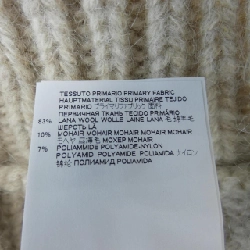 TESSUTO PRIMARIO PRIMARY FABRIC
HAUPTMATERIAL TISSU PRIMAIRE TEJIDO
PRIMARIO プライマリファブリック
ПЕРВИЧНАЯ ТКАНЬ TECIDO PRIMÁRIO
83% LANA WOOL WOLLE LAINE LANA 毛
ШЕРСТЬ LÃ
10% MOHAIR MOHAIR MOHAIR MOHAIR MOHAIR
毛 МОХЕР MOHAIR
7% POLIAMMIDE POLYAMIDE-NYLON
POLYAMID POLYAMIDE POLIAMIDA ナイロン
ПОЛИАМИД POLIAMIDA